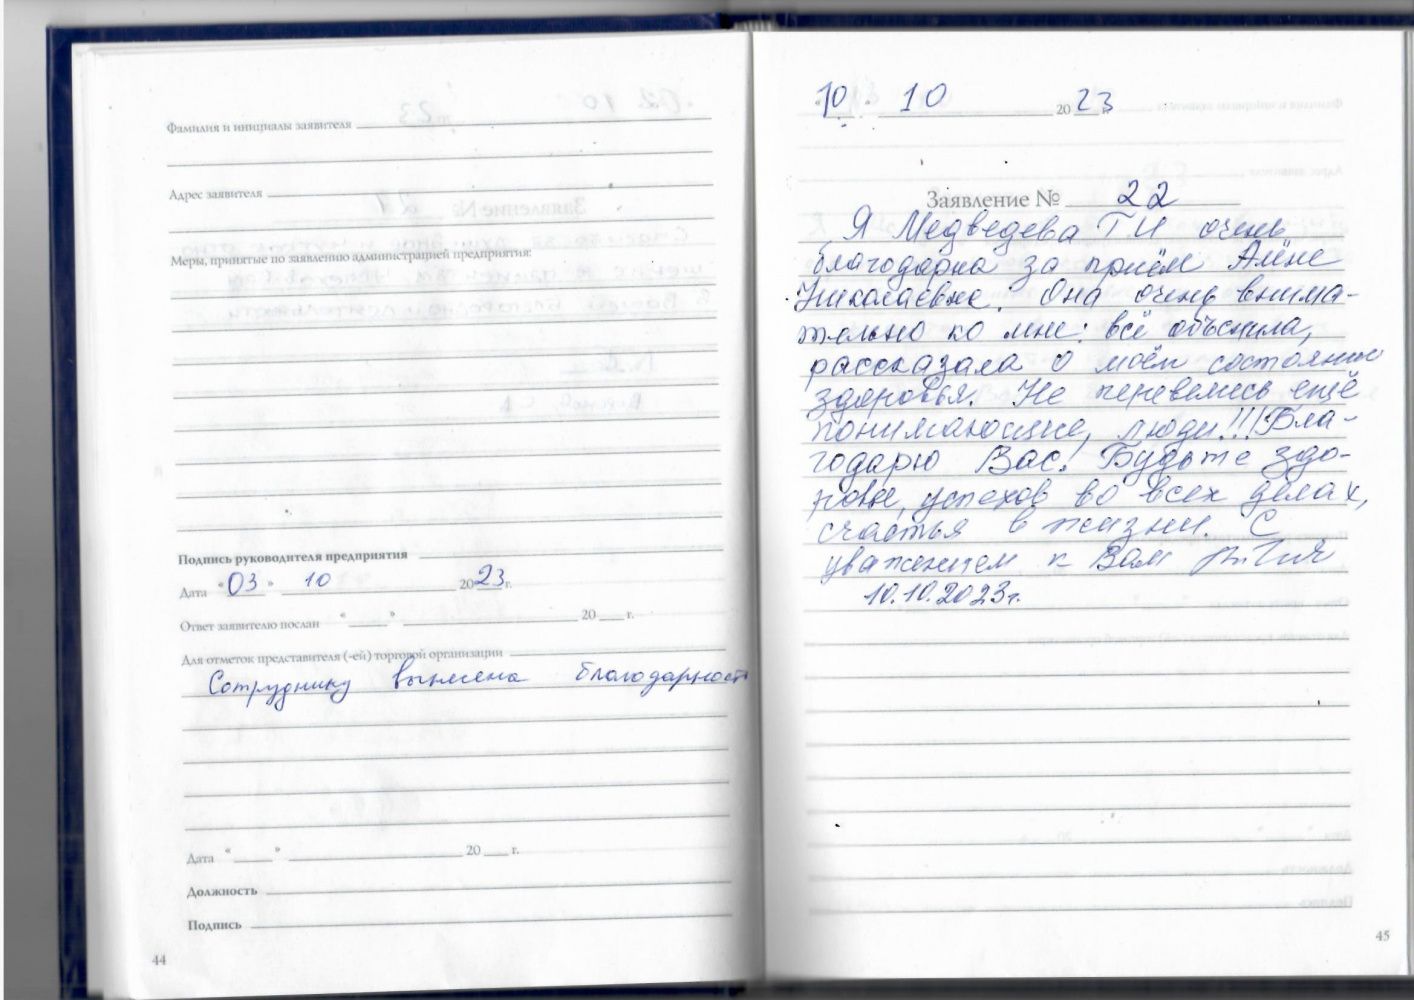 Фамилия и инициалы заявителя
Адрес заявителя
Меры, принятые по заявлению администрацией предприятия:
Подпись руководителя предприятия
Дата "03" 10 2023 г.
Ответ заявителю послан " " 20 г.
Для отметок представителя (-ей) торговой организации
Сотруднику вынесена благодарност
Дата " " 20 г.
Должность
Подпись
44
"10" 10 2023 г.
Заявление № 22
Я Медведева Т И очень
благодарна за приём Алёне
Николаевне. Она очень внима-
тельно ко мне: всё объснила,
рассказала о моём состоянии
здоровья. Не перевелись ещё
понимающие, люди!!! Бла-
годарю Вас! Будьте здо-
ровы, успехов во всех делах,
счастья в жизни. С
уважением к Вам
10.10.2023г.
45